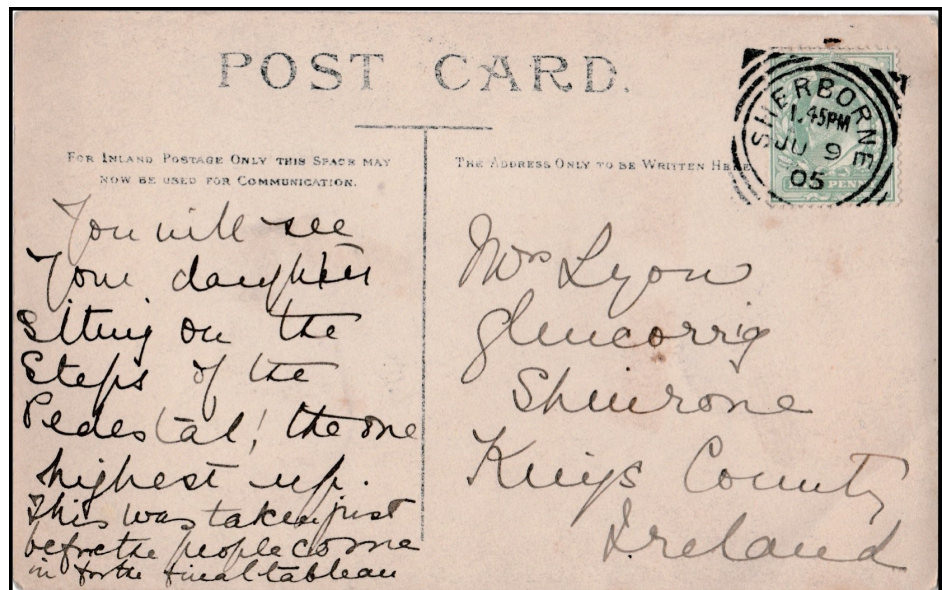 POST CARD.
FOR INLAND POSTAGE ONLY THIS SPACE MAY
NOW BE USED FOR COMMUNICATION.
THE ADDRESS ONLY TO BE WRITTEN HERE
SHERBORNE
1.45PM
JU 9
05
PENN
You will see
Your daughter
sitting on the
Steps of the
Pedestal! the one
highest up.
This was taken just
before the people come
in for the final tableau
Mrs Lyon
Glencorrig
Shinrone
Kings County
Ireland